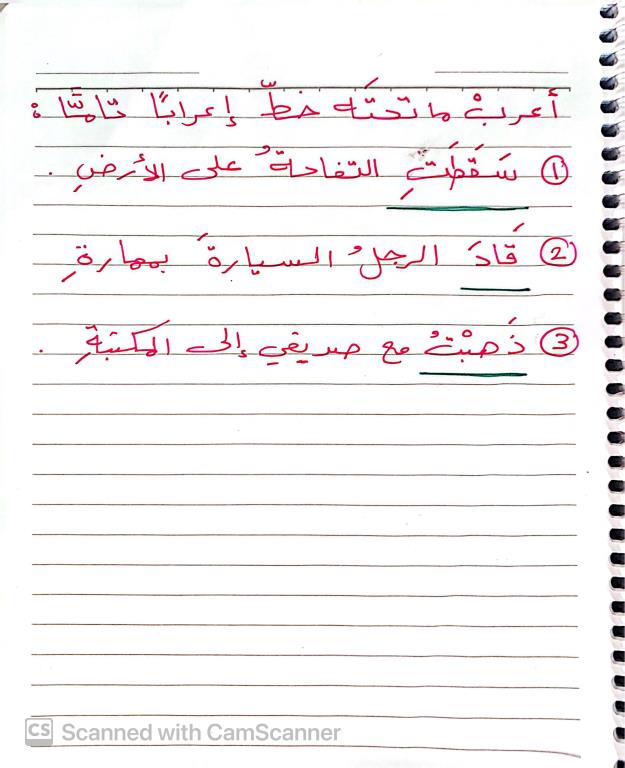 أعربْ ما تحتَه خطّ إعرابًا تامًّا :
① سَقَطَتِ التفاحةُ على الأرضِ .
② قَادَ الرجلُ السيارةَ بمهارةِ
③ ذَهبْتُ مع صديقي إلى المكتبةِ .
CS Scanned with CamScanner